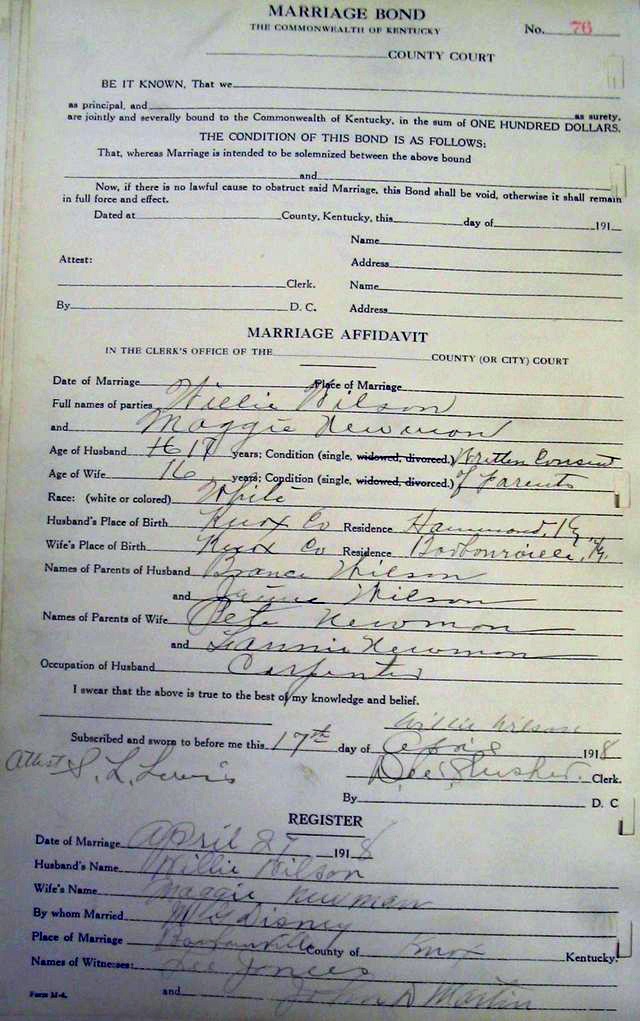 MARRIAGE BOND
THE COMMONWEALTH OF KENTUCKY
No. 76
COUNTY COURT
BE IT KNOWN, That we
as principal, and as surety,
are jointly and severally bound to the Commonwealth of Kentucky, in the sum of ONE HUNDRED DOLLARS.
THE CONDITION OF THIS BOND IS AS FOLLOWS:
That, whereas Marriage is intended to be solemnized between the above bound
and
Now, if there is no lawful cause to obstruct said Marriage, this Bond shall be void, otherwise it shall remain
in full force and effect.
Dated at County, Kentucky, this day of 191
Name
Attest: Address
Clerk. Name
By D. C. Address
MARRIAGE AFFIDAVIT
IN THE CLERK'S OFFICE OF THE COUNTY (OR CITY) COURT
Date of Marriage Place of Marriage
Full names of parties Willie Wilson
and Maggie Newmon
Age of Husband 17 years; Condition (single, widowed, divorced.) Written Consent
Age of Wife 16 years; Condition (single, widowed, divorced.) of Parents
Race: (white or colored) White
Husband's Place of Birth Knox Co Residence Hammond, Ky.
Wife's Place of Birth Knox Co Residence Barbourville, Ky.
Names of Parents of Husband Wilson
and Wilson
Names of Parents of Wife Pete Newmon
and Fannie Newmon
Occupation of Husband Carpenter
I swear that the above is true to the best of my knowledge and belief.
Willie Wilson
Subscribed and sworn to before me this 17th day of April 1918
Attest S. L. Lewis Dee Slusher. Clerk.
By D. C
REGISTER
Date of Marriage April 27 1918
Husband's Name Willie Wilson
Wife's Name Maggie Newman
By whom Married Disney
Place of Marriage Barbourville County of Knox Kentucky.
Names of Witnesses: Lee Jones
and John D Martin
Form M-4.